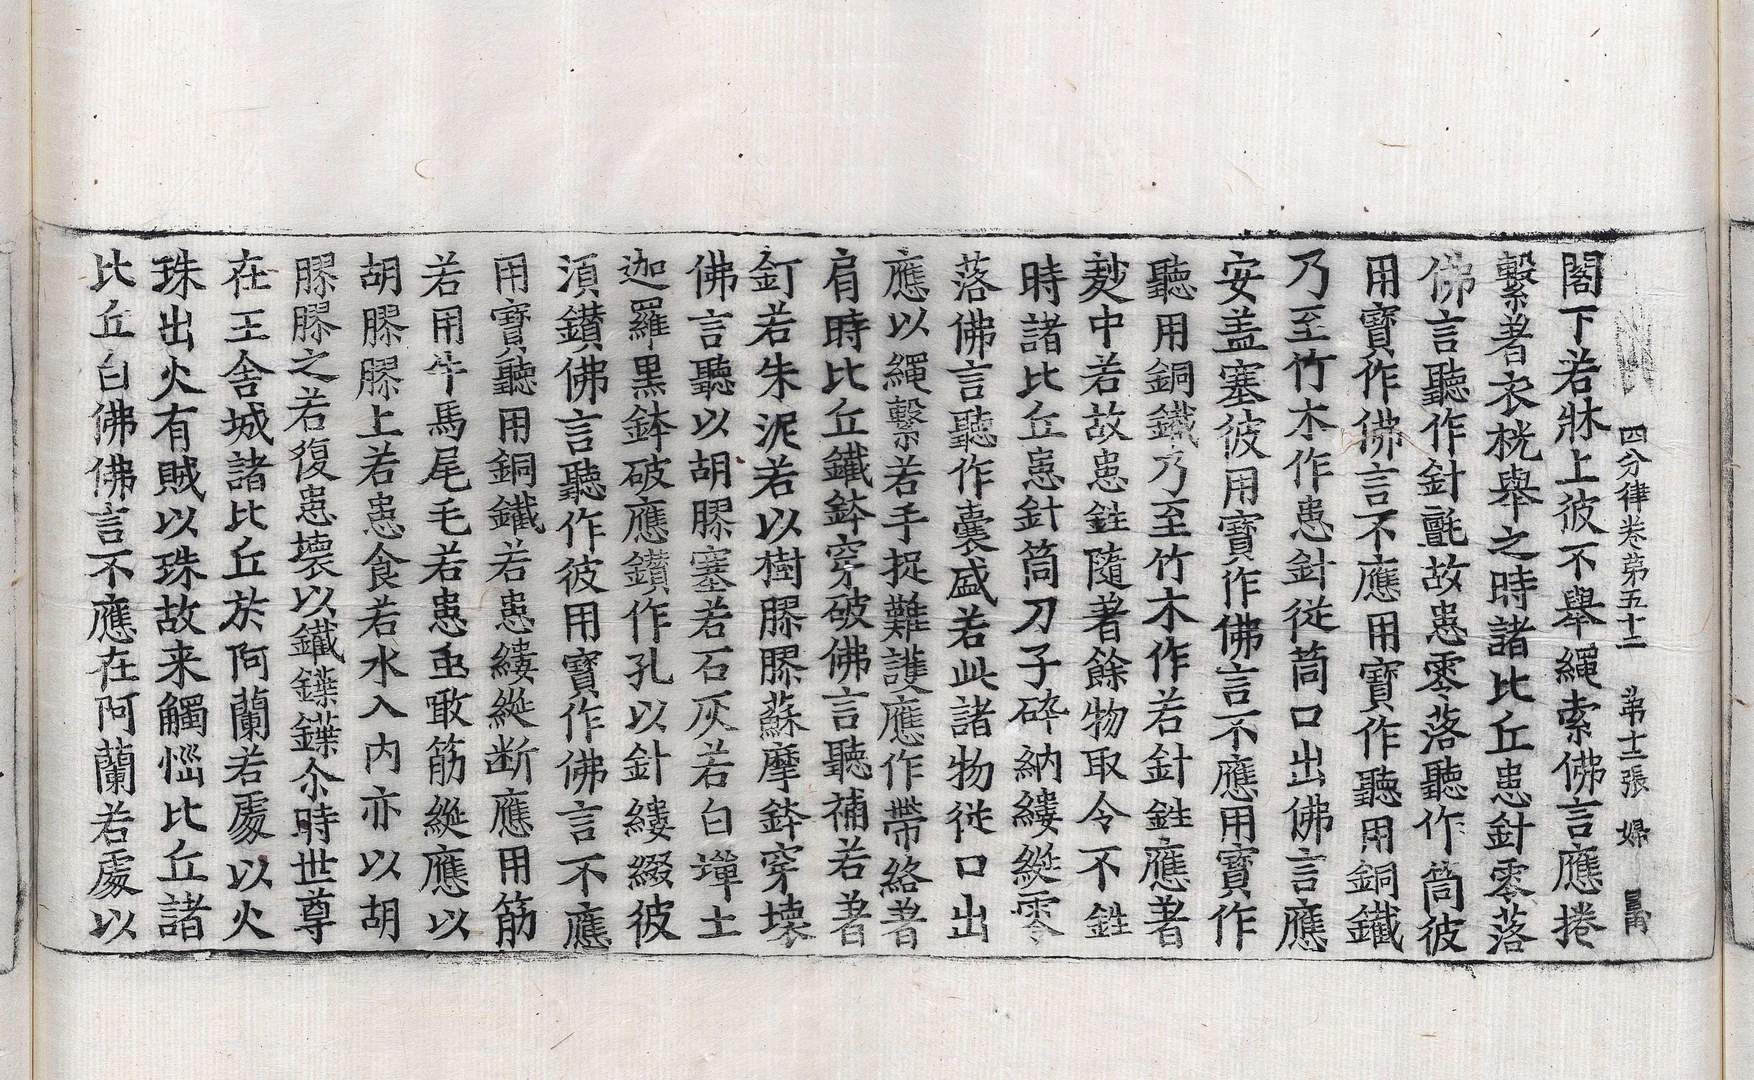 四分律卷第五十二 第十二張 婦
閣下若牀上彼不舉繩索佛言應捲
繫著衣桄舉之時諸比丘患針零落
佛言聽作針氈故患零落聽作筒彼
用寶作佛言不應用寶作聽用銅鐵
乃至竹木作患針從筒口出佛言應
安盖塞彼用寶作佛言不應用寶作
聽用銅鐵乃至竹木作若針鉎應著
麨中若故患鉎隨著餘物取令不鉎
時諸比丘患針筒刀子碎納縷綖零
落佛言聽作囊盛若此諸物從口出
應以繩繫若手捉難護應作帶絡著
肩時比丘鐵鉢穿破佛言聽補若著
釘若朱泥若以樹膠膠蘇摩鉢穿壞
佛言聽以胡膠塞若石灰若白墠土
迦羅黑鉢破應鑽作孔以針縷綴彼
湏鑽佛言聽作彼用寶作佛言不應
用寶聽用銅鐵若患縷綖断應用筋
若用牛馬尾毛若患虫噉筋綖應以
胡膠膠上若患食若水入內亦以胡
膠膠之若復患壞以鐵鍱鍱尒時世尊
在王舍城諸比丘於阿蘭若處以火
珠出火有賊以珠故来觸惱比丘諸
比丘白佛佛言不應在阿蘭若處以